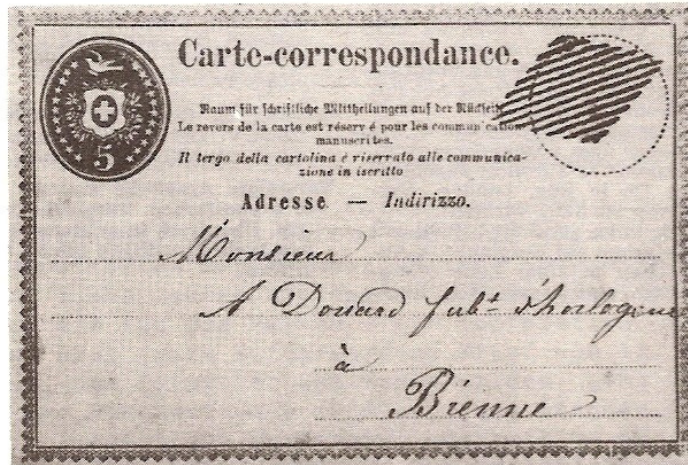 Carte-correspondance.
5
Raum für schriftliche Mittheilungen auf der Rückseite
Le revers de la carte est réservé pour les communication
manuscrites.
Il tergo della cartolina é riserrato alle communica-
zione in iscritto
Adresse — Indirizzo.
Monsieur
A Douard fabt d'horlogerie
à
Bienne